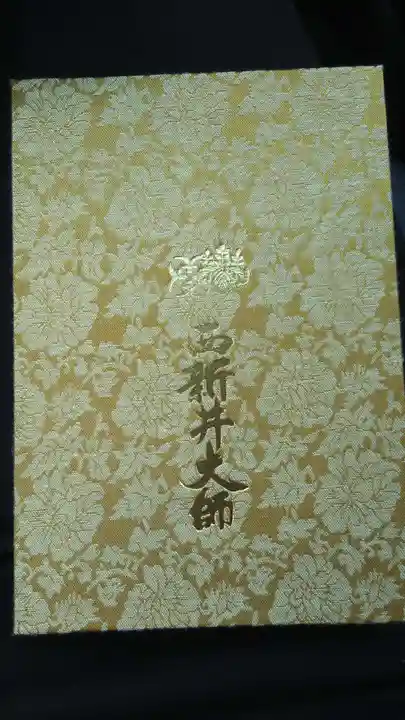 西新井大師